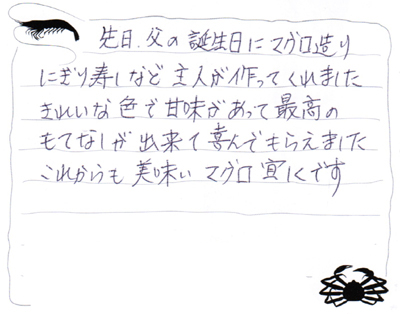 先日、父の誕生日にマグロ造り
にぎり寿しなど主人が作ってくれました
きれいな色で甘味があって最高の
もてなしが出来て喜んでもらえました
これからも美味いマグロ宜しくです